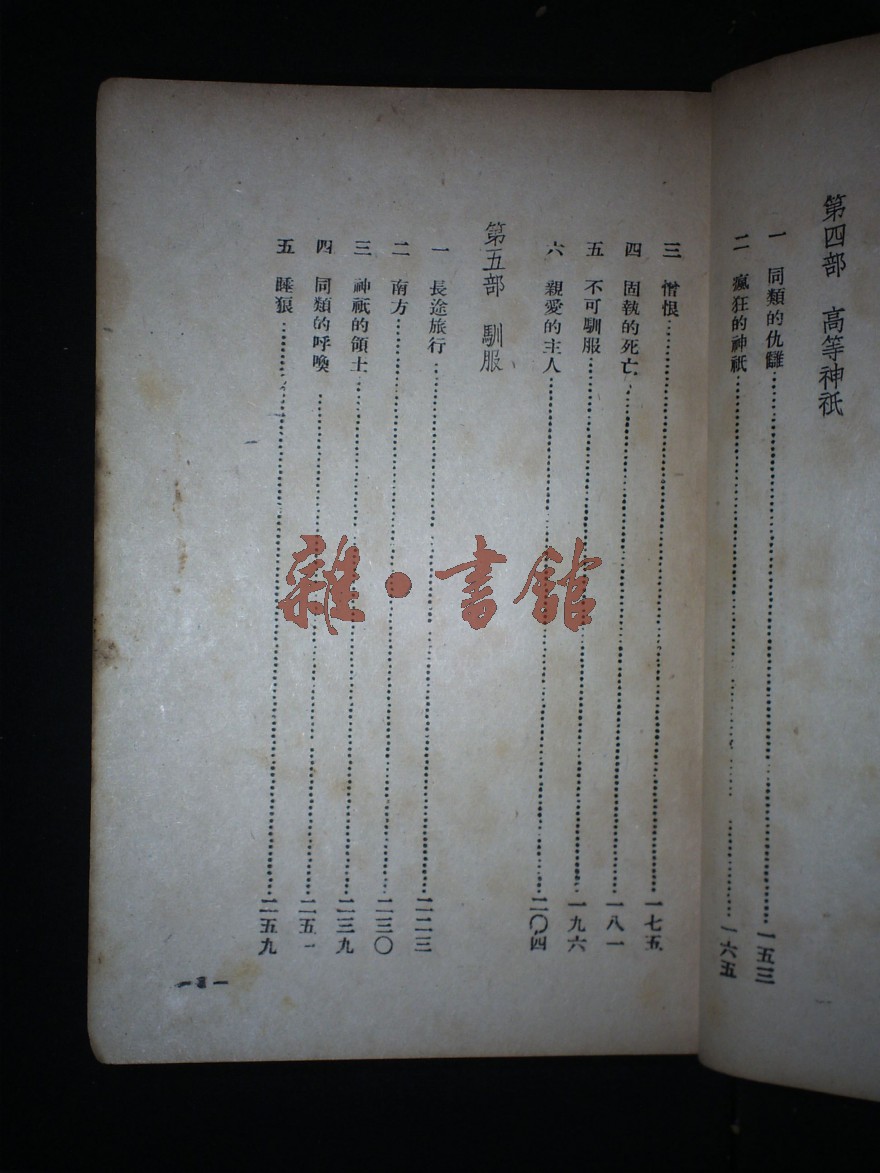 第四部 高等神祇
一 同類的仇讎 一五三
二 瘋狂的神祇 一六五
三 憎恨 一七五
四 固執的死亡 一八一
五 不可馴服 一九六
六 親愛的主人 二〇四
第五部 馴服
一 長途旅行 二二三
二 南方 二三〇
三 神祇的領土 二三九
四 同類的呼喚 二五一
五 睡狼 二五九
雜·書館